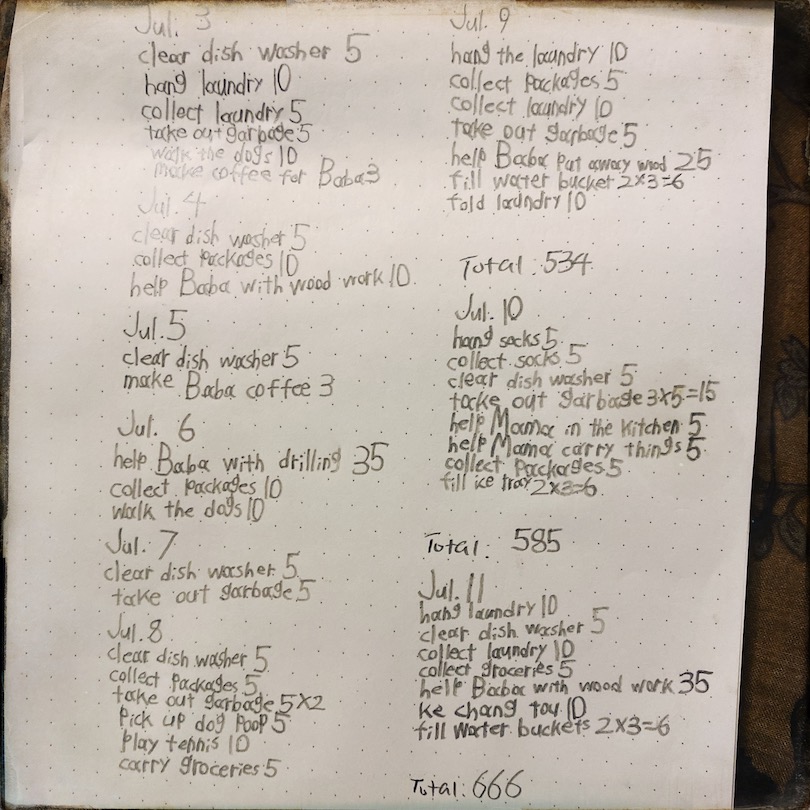 Jul. 3
clear dish washer 5
hang laundry 10
collect laundry 5
take out garbage 5
walk the dogs 10
make coffee for Baba 3
Jul. 4
clear dish washer 5
collect packages 10
help Baba with wood work 10
Jul. 5
clear dish washer 5
make Baba coffee 3
Jul. 6
help Baba with drilling 35
collect packages 10
walk the dogs 10
Jul. 7
clear dish washer 5
take out garbage 5
Jul. 8
clear dish washer 5
collect packages 5
take out garbage 5x2
Pick up dog poop 5
play tennis 10
carry groceries 5
Jul. 9
hang the laundry 10
collect packages 5
collect laundry 10
take out garbage 5
help Baba put away wood 25
fill water bucket 2x3=6
fold laundry 10
Total: 534
Jul. 10
hang socks 5
collect socks 5
clear dish washer 5
take out garbage 3x5=15
help Mama in the kitchen 5
help Mama carry things 5
collect packages 5
fill ice tray 2x3=6
Total: 585
Jul. 11
hang laundry 10
clear dish washer 5
collect laundry 10
collect groceries 5
help Baba with wood work 35
ke chang tou 10
fill water buckets 2x3=6
Total: 666